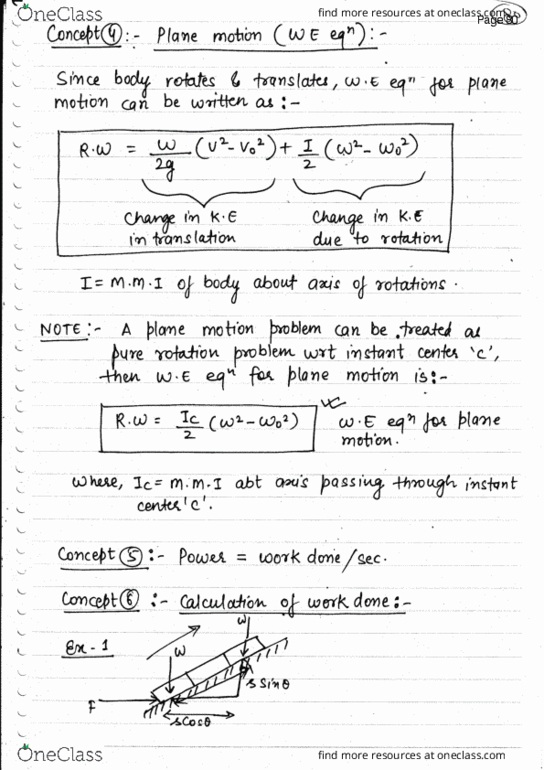 OneClass
find more resources at oneclass.com
Concept ④ :- Plane motion (W E eqⁿ) :-
Since body rotates & translates, W.E eqⁿ for plane
motion can be written as :-
R.W = W/2g (V² - V₀²) + I/2 (ω² - ω₀²)
Change in K.E Change in K.E
in translation due to rotation
I = M.M.I of body about axis of rotations.
NOTE :- A plane motion problem can be treated as
pure rotation problem wrt instant center 'c',
then W.E eqⁿ for plane motion is :-
R.W = Ic/2 (ω² - ω₀²) W.E eqⁿ for plane
motion.
where, Ic = M.M.I abt axis passing through instant
center 'c'.
Concept ⑤ :- Power = work done/sec.
Concept ⑥ :- Calculation of work done :-
Ex - 1
W
W
F
s Sinθ
s Cosθ
OneClass
find more resources at oneclass.com